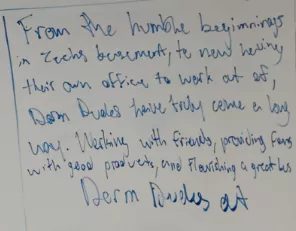 From the humble beginnings
in Zachs basement, to now having
their own office to work out of,
Derm Dudes have truly come a long
way. Working with friends, providing fans
with good products, and flourishing a great bus
Derm Dudes at